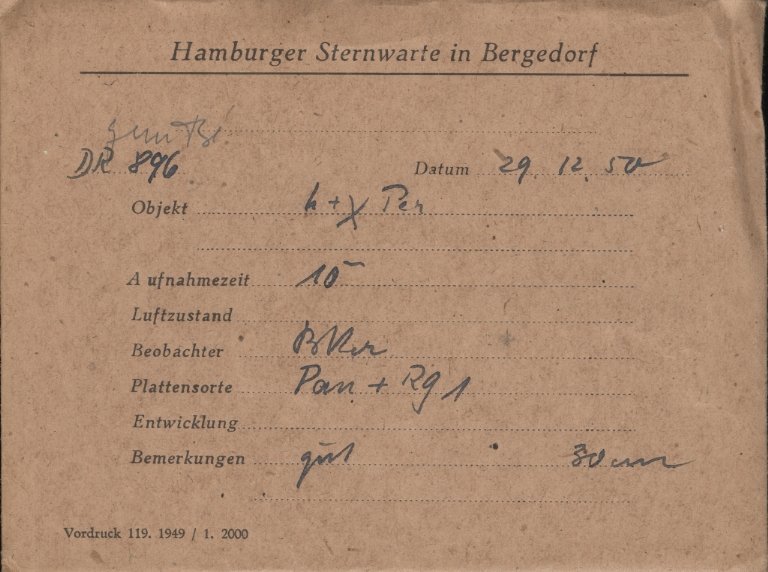 Hamburger Sternwarte in Bergedorf
DR 896 Datum 29. 12. 50
Objekt h + χ Per
Aufnahmezeit 10
Luftzustand
Beobachter
Plattensorte Pan + Rg 1
Entwicklung
Bemerkungen gut 30 cm
Vordruck 119. 1949 / 1. 2000